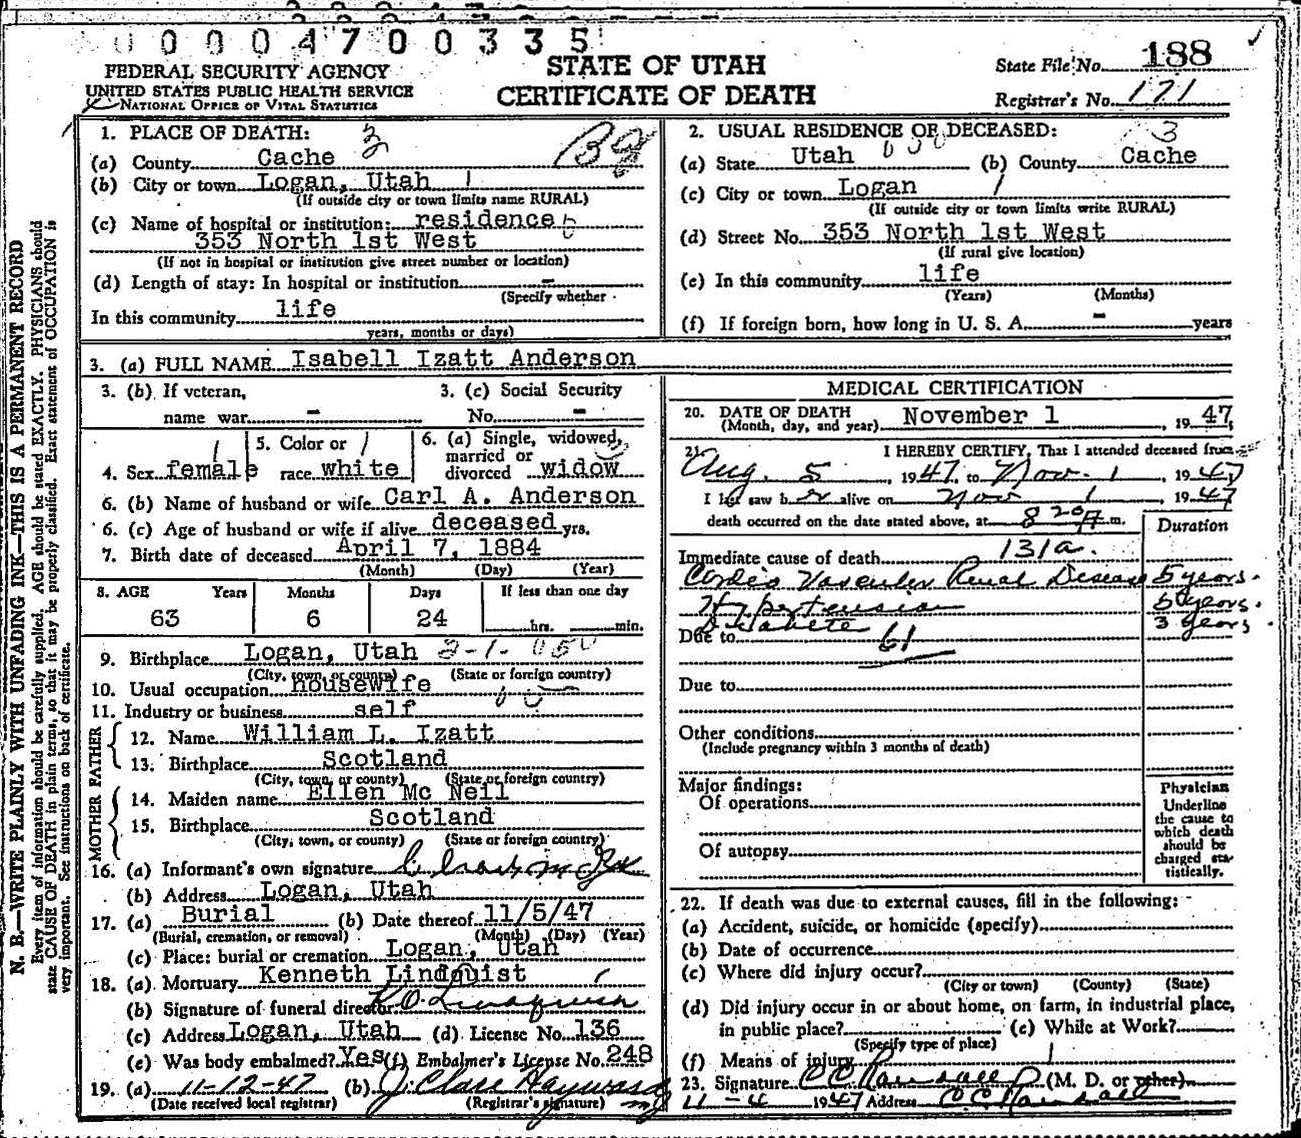 00004700335
FEDERAL SECURITY AGENCY
UNITED STATES PUBLIC HEALTH SERVICE
NATIONAL OFFICE OF VITAL STATISTICS
STATE OF UTAH
CERTIFICATE OF DEATH
State File No. 188
Registrar's No. 171
N. B.—WRITE PLAINLY WITH UNFADING INK—THIS IS A PERMANENT RECORD
Every item of information should be carefully supplied. AGE should be stated EXACTLY. PHYSICIANS should
state CAUSE OF DEATH in plain terms, so that it may be properly classified. Exact statement of OCCUPATION is
very important. See instructions on back of certificate.
1. PLACE OF DEATH: 3
(a) County Cache
(b) City or town Logan, Utah 1
(If outside city or town limits name RURAL)
(c) Name of hospital or institution: residence
353 North 1st West
(If not in hospital or institution give street number or location)
(d) Length of stay: In hospital or institution -
(Specify whether
In this community life
years, months or days)
2. USUAL RESIDENCE OF DECEASED: 3
(a) State Utah (b) County Cache
(c) City or town Logan 1
(If outside city or town limits write RURAL)
(d) Street No. 353 North 1st West
(If rural give location)
(e) In this community life
(Years) (Months)
(f) If foreign born, how long in U. S. A. - years
3. (a) FULL NAME Isabell Izatt Anderson
3. (b) If veteran, name war -
3. (c) Social Security No. -
4. Sex female
5. Color or race white
6. (a) Single, widowed, married or divorced widow
6. (b) Name of husband or wife Carl A. Anderson
6. (c) Age of husband or wife if alive deceased yrs.
7. Birth date of deceased April 7, 1884
(Month) (Day) (Year)
8. AGE Years Months Days If less than one day
63 6 24 hrs. min.
9. Birthplace Logan, Utah 3-1- 050
(City, town, or county) (State or foreign country)
10. Usual occupation housewife
11. Industry or business self
FATHER
12. Name William L. Izatt
13. Birthplace Scotland
(City, town, or county) (State or foreign country)
MOTHER
14. Maiden name Ellen Mc Neil
15. Birthplace Scotland
(City, town, or county) (State or foreign country)
16. (a) Informant's own signature
(b) Address Logan, Utah
17. (a) Burial (b) Date thereof 11/5/47
(Burial, cremation, or removal) (Month) (Day) (Year)
(c) Place: burial or cremation Logan, Utah
18. (a) Mortuary Kenneth Lindquist
(b) Signature of funeral director K O Lindquist
(c) Address Logan, Utah (d) License No. 136
(e) Was body embalmed? Yes (f) Embalmer's License No. 248
19. (a) 11-12-47 (b) J. Clare Hayward
(Date received local registrar) (Registrar's signature)
MEDICAL CERTIFICATION
20. DATE OF DEATH November 1, 1947
(Month, day, and year)
21. I HEREBY CERTIFY, That I attended deceased from
Aug. 5, 1947, to Nov. 1, 1947
I last saw her alive on Nov 1, 1947
death occurred on the date stated above, at 8 20 A m.
Duration
Immediate cause of death 131a.
Cardio Vascular Renal Disease 5 years.
Hypertension 5 years.
Diabetes 3 years.
Due to 61
Due to
Other conditions
(Include pregnancy within 3 months of death)
Major findings:
Of operations
Of autopsy
Physician
Underline
the cause to
which death
should be
charged sta-
tistically.
22. If death was due to external causes, fill in the following: -
(a) Accident, suicide, or homicide (specify)
(b) Date of occurrence
(c) Where did injury occur?
(City or town) (County) (State)
(d) Did injury occur in or about home, on farm, in industrial place,
in public place? (e) While at Work?
(Specify type of place)
(f) Means of injury
23. Signature C C Randall (M. D. or other)
11-4 1947 Address C. C. Randall